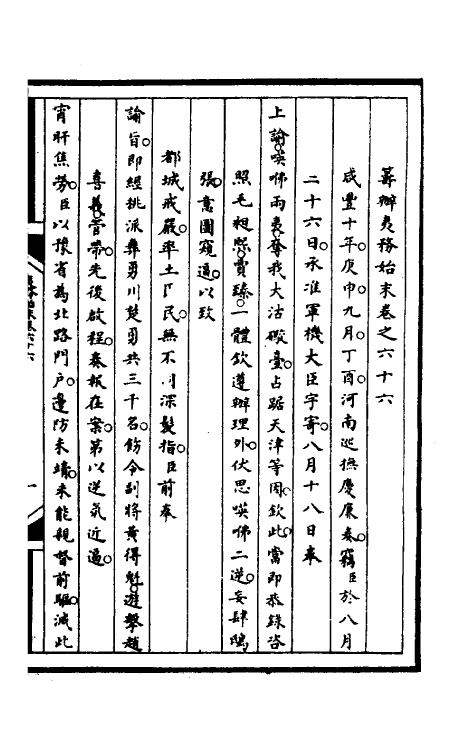 籌辦夷務始末卷之六十六
咸豐十年庚申九月丁酉河南巡撫慶廉奏竊臣於八月
二十六日承准軍機大臣字寄八月十八日奉
上諭嘆咈兩夷奪我大沽礮臺占踞天津等因欽此當即恭錄咨
照毛昶熙賈臻一體欽遵辦理外伏思嘆咈二逆妄肆鴟
張意圖窺逼以致
都城戒嚴率土臣民無不同深髮指臣前奉
諭旨即經挑派彝勇川楚勇共三千名飭令副將黃得魁遊擊趙
喜義管帶先後啟程奏報在案第以逆氛近逼
宵旰焦勞臣以豫省為北路門戶邊防未靖未能親督前驅滅此
一